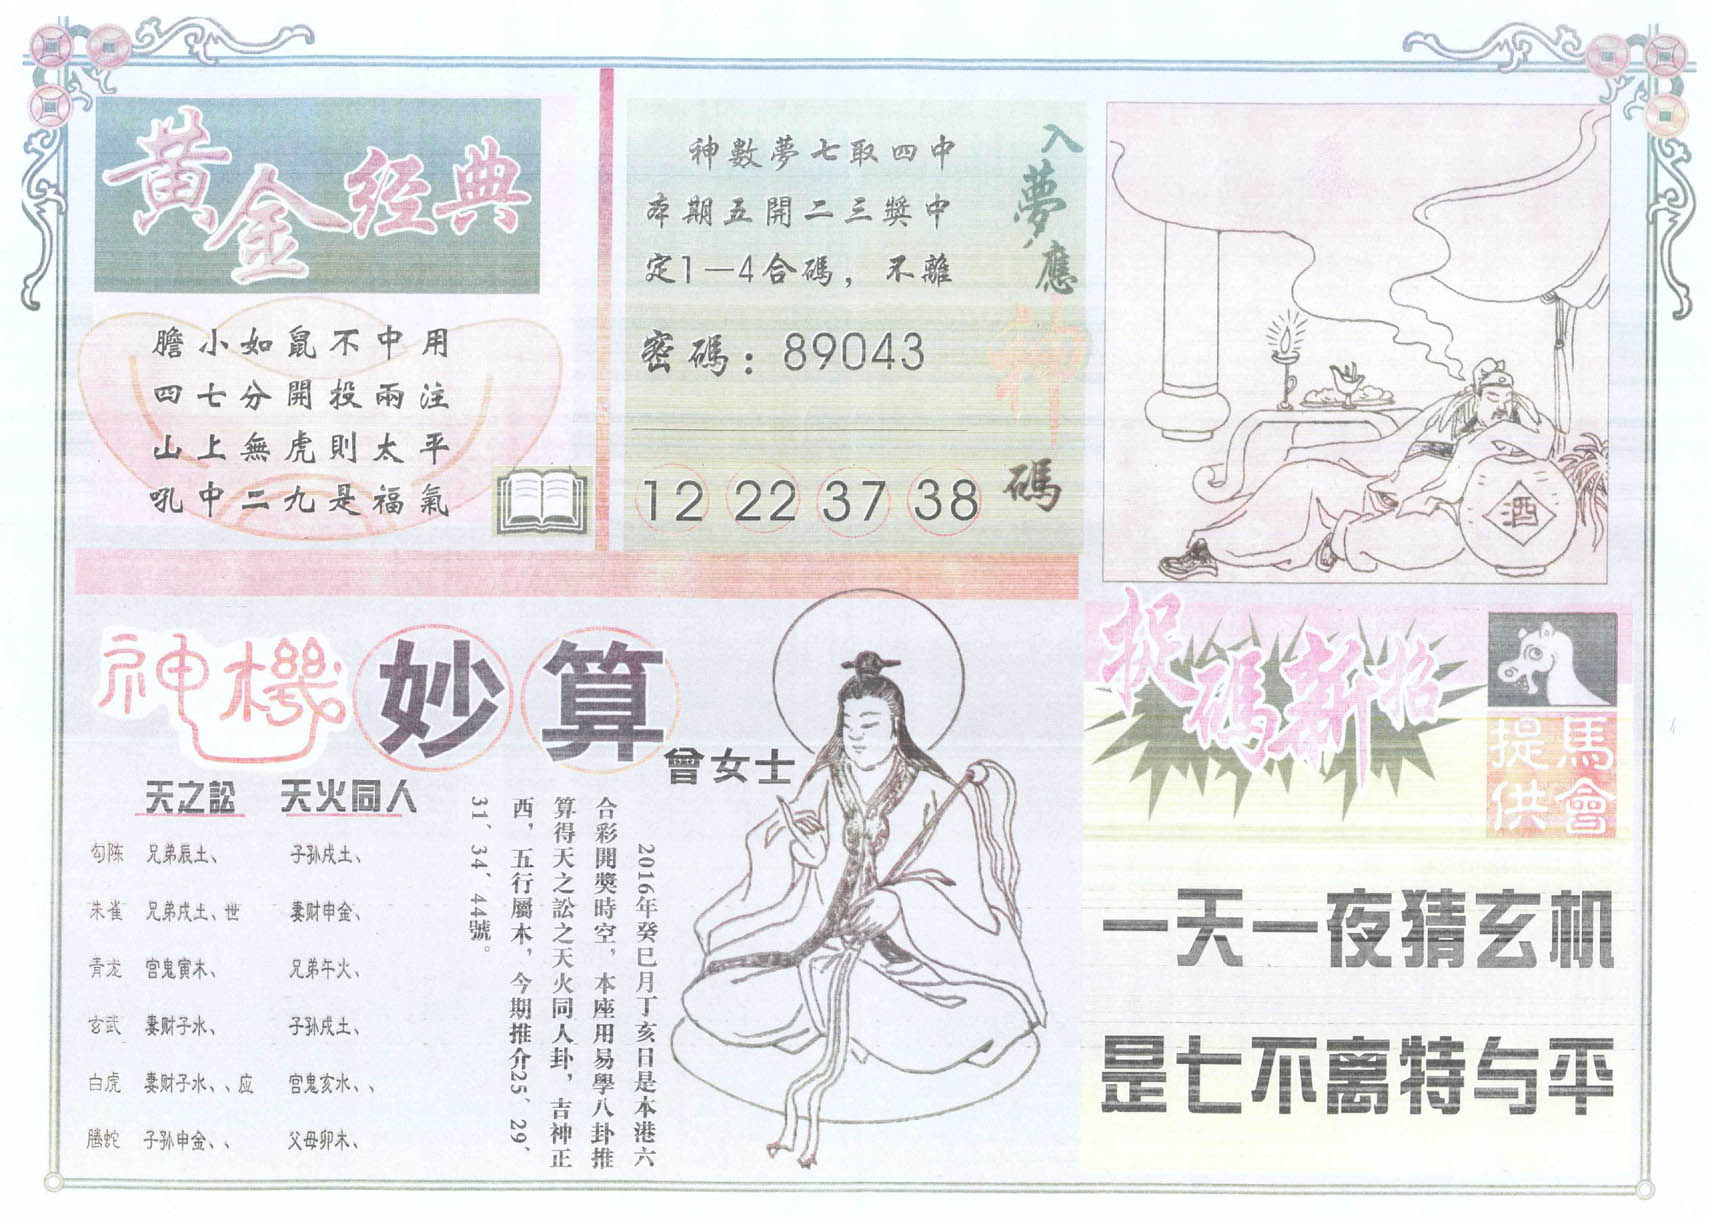 黃金经典
膽小如鼠不中用
四七分開投兩注
山上無虎則太平
吼中二九是福氣
入夢應神碼
神數夢七取四中
本期五開二三獎中
定1—4合碼，不離
密碼：89043
12 22 37 38
酒
神機妙算
曾女士
天之訟 天火同人
勾陈 兄弟辰土、 子孙戌土、
朱雀 兄弟戌土、世 妻财申金、
青龙 官鬼寅木、 兄弟午火、
玄武 妻财子水、 子孙戌土、
白虎 妻财子水、、应 官鬼亥水、、
腾蛇 子孙申金、、 父母卯木、
2016年癸巳月丁亥日是本港六
合彩開獎時空，本座用易學八卦推
算得天之訟之天火同人卦，吉神正
西，五行屬木，今期推介25、29、
31、34、44號。
捉碼新招
馬會提供
一天一夜猜玄机
是七不离特与平